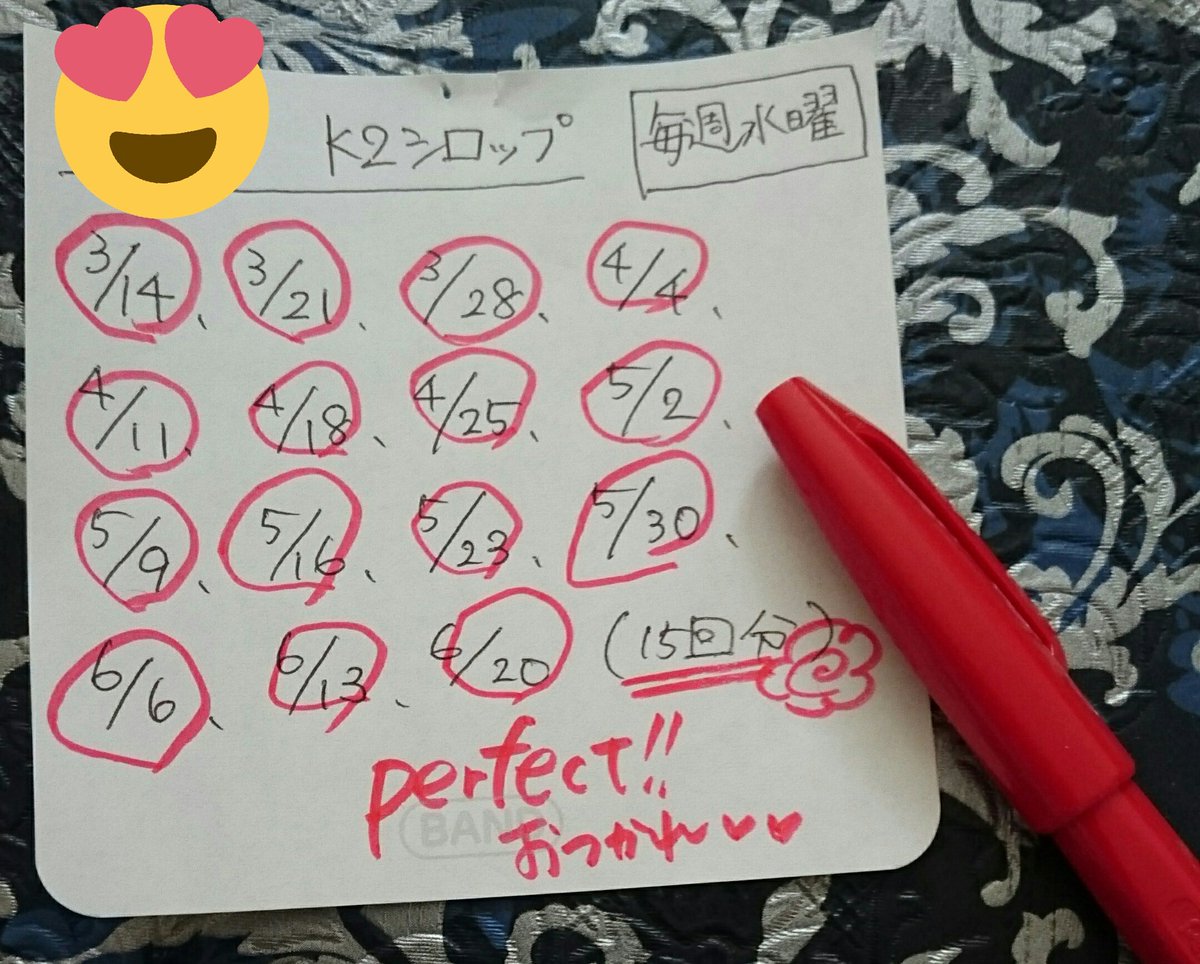 K2シロップ 毎週水曜
3/14、 3/21、 3/28、 4/4、
4/11、 4/18、 4/25、 5/2、
5/9、 5/16、 5/23、 5/30、
6/6、 6/13、 6/20 (15回分)
perfect!!
BAND
おつかれ〜♥♥